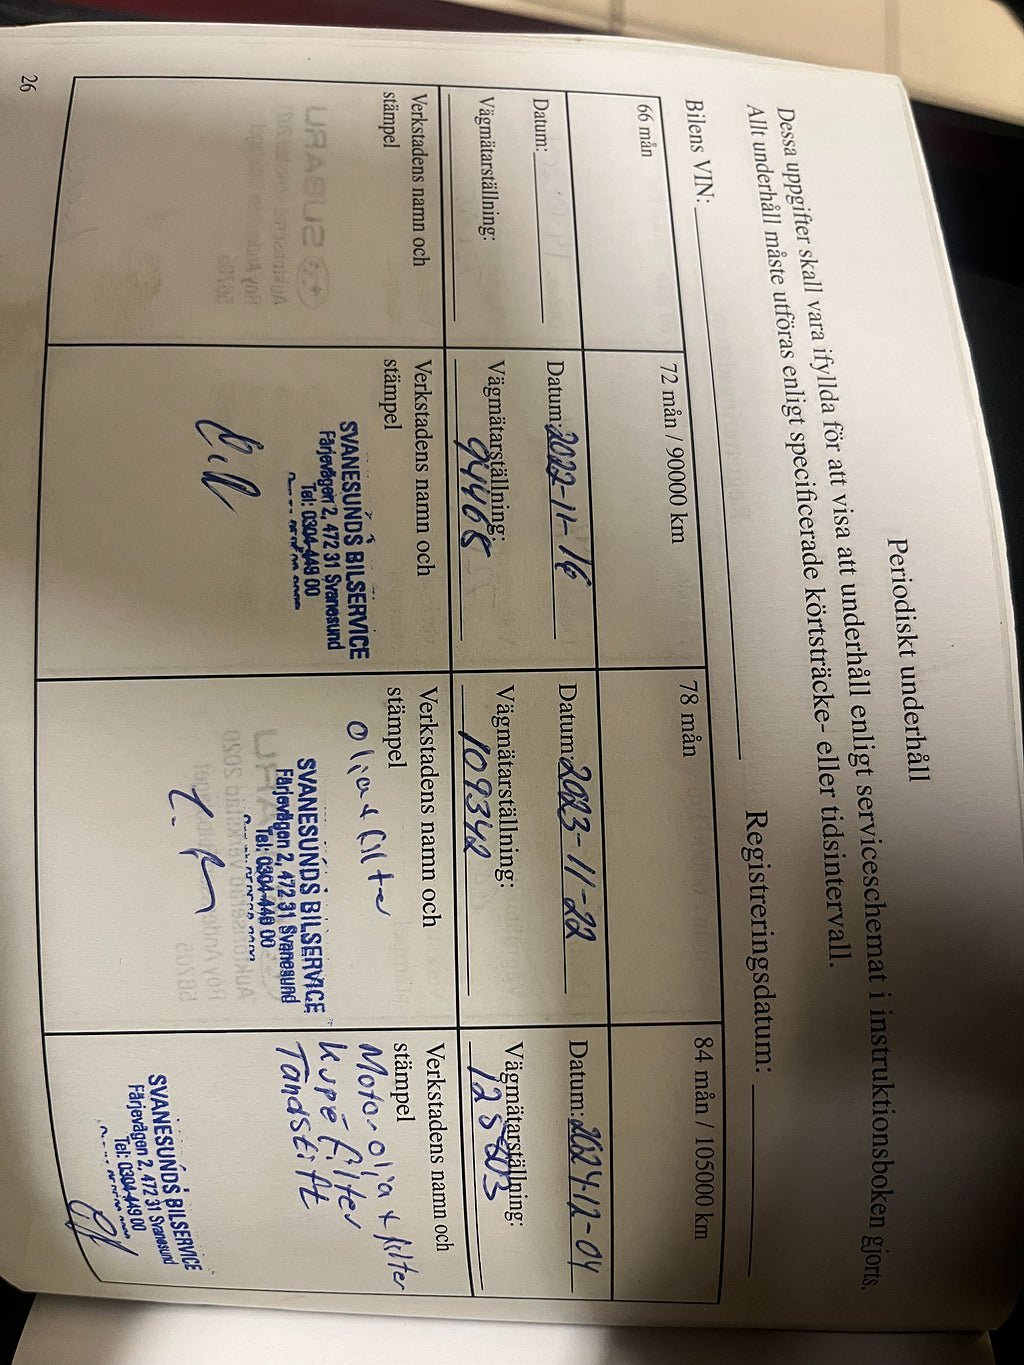 Periodiskt underhåll
Dessa uppgifter skall vara ifyllda för att visa att underhåll enligt serviceschemat i instruktionsboken gjorts.
Allt underhåll måste utföras enligt specificerade körtsträcke- eller tidsintervall.
Bilens VIN: Registreringsdatum:
66 mån
Datum:
Vägmätarställning:
Verkstadens namn och
stämpel
72 mån / 90000 km
Datum: 2022-11-16
Vägmätarställning:
94468
Verkstadens namn och
stämpel
SVANESUNDS BILSERVICE
Färjevägen 2, 472 31 Svanesund
Tel: 0304-449 00
78 mån
Datum: 2023-11-22
Vägmätarställning:
109342
Verkstadens namn och
stämpel
Olja + filter
SVANESUNDS BILSERVICE
Färjevägen 2, 472 31 Svanesund
Tel: 0304-449 00
84 mån / 105000 km
Datum: 202412-04
Vägmätarställning:
Verkstadens namn och
stämpel
Motorolja + filter
Kupé filter
Tändstift
SVANESUNDS BILSERVICE
Färjevägen 2, 472 31 Svanesund
Tel: 0304-449 00
26